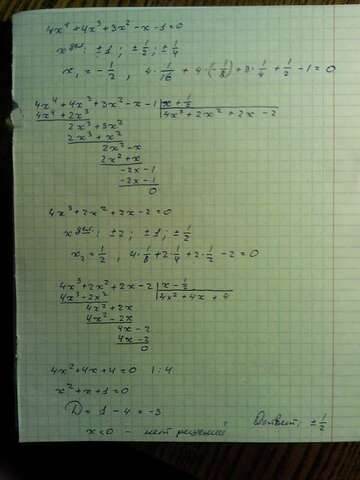 4x⁴+4x³+3x²-x-1=0
±1; ±1/2; ±1/4
x₁=-1/2, 4·1/16+4·(-1/8)+3·1/4+1/2-1=0
4x⁴+4x³+3x²-x-1 | x+1/2
4x⁴+2x³ | 4x³+2x²+2x-2
2x³+3x²
2x³+x²
2x²-x
2x²+x
-2x-1
-2x-1
0
4x³+2x²+2x-2=0
±2; ±1; ±1/2
x₂=1/2, 4·1/8+2·1/4+2·1/2-2=0
4x³+2x²+2x-2 | x-1/2
4x³-2x² | 4x²+4x+4
4x²+2x
4x²-2x
4x-2
4x-2
0
4x²+4x+4=0 |:4
x²+x+1=0
D=1-4=-3
нет решений
Ответ: ±1/2